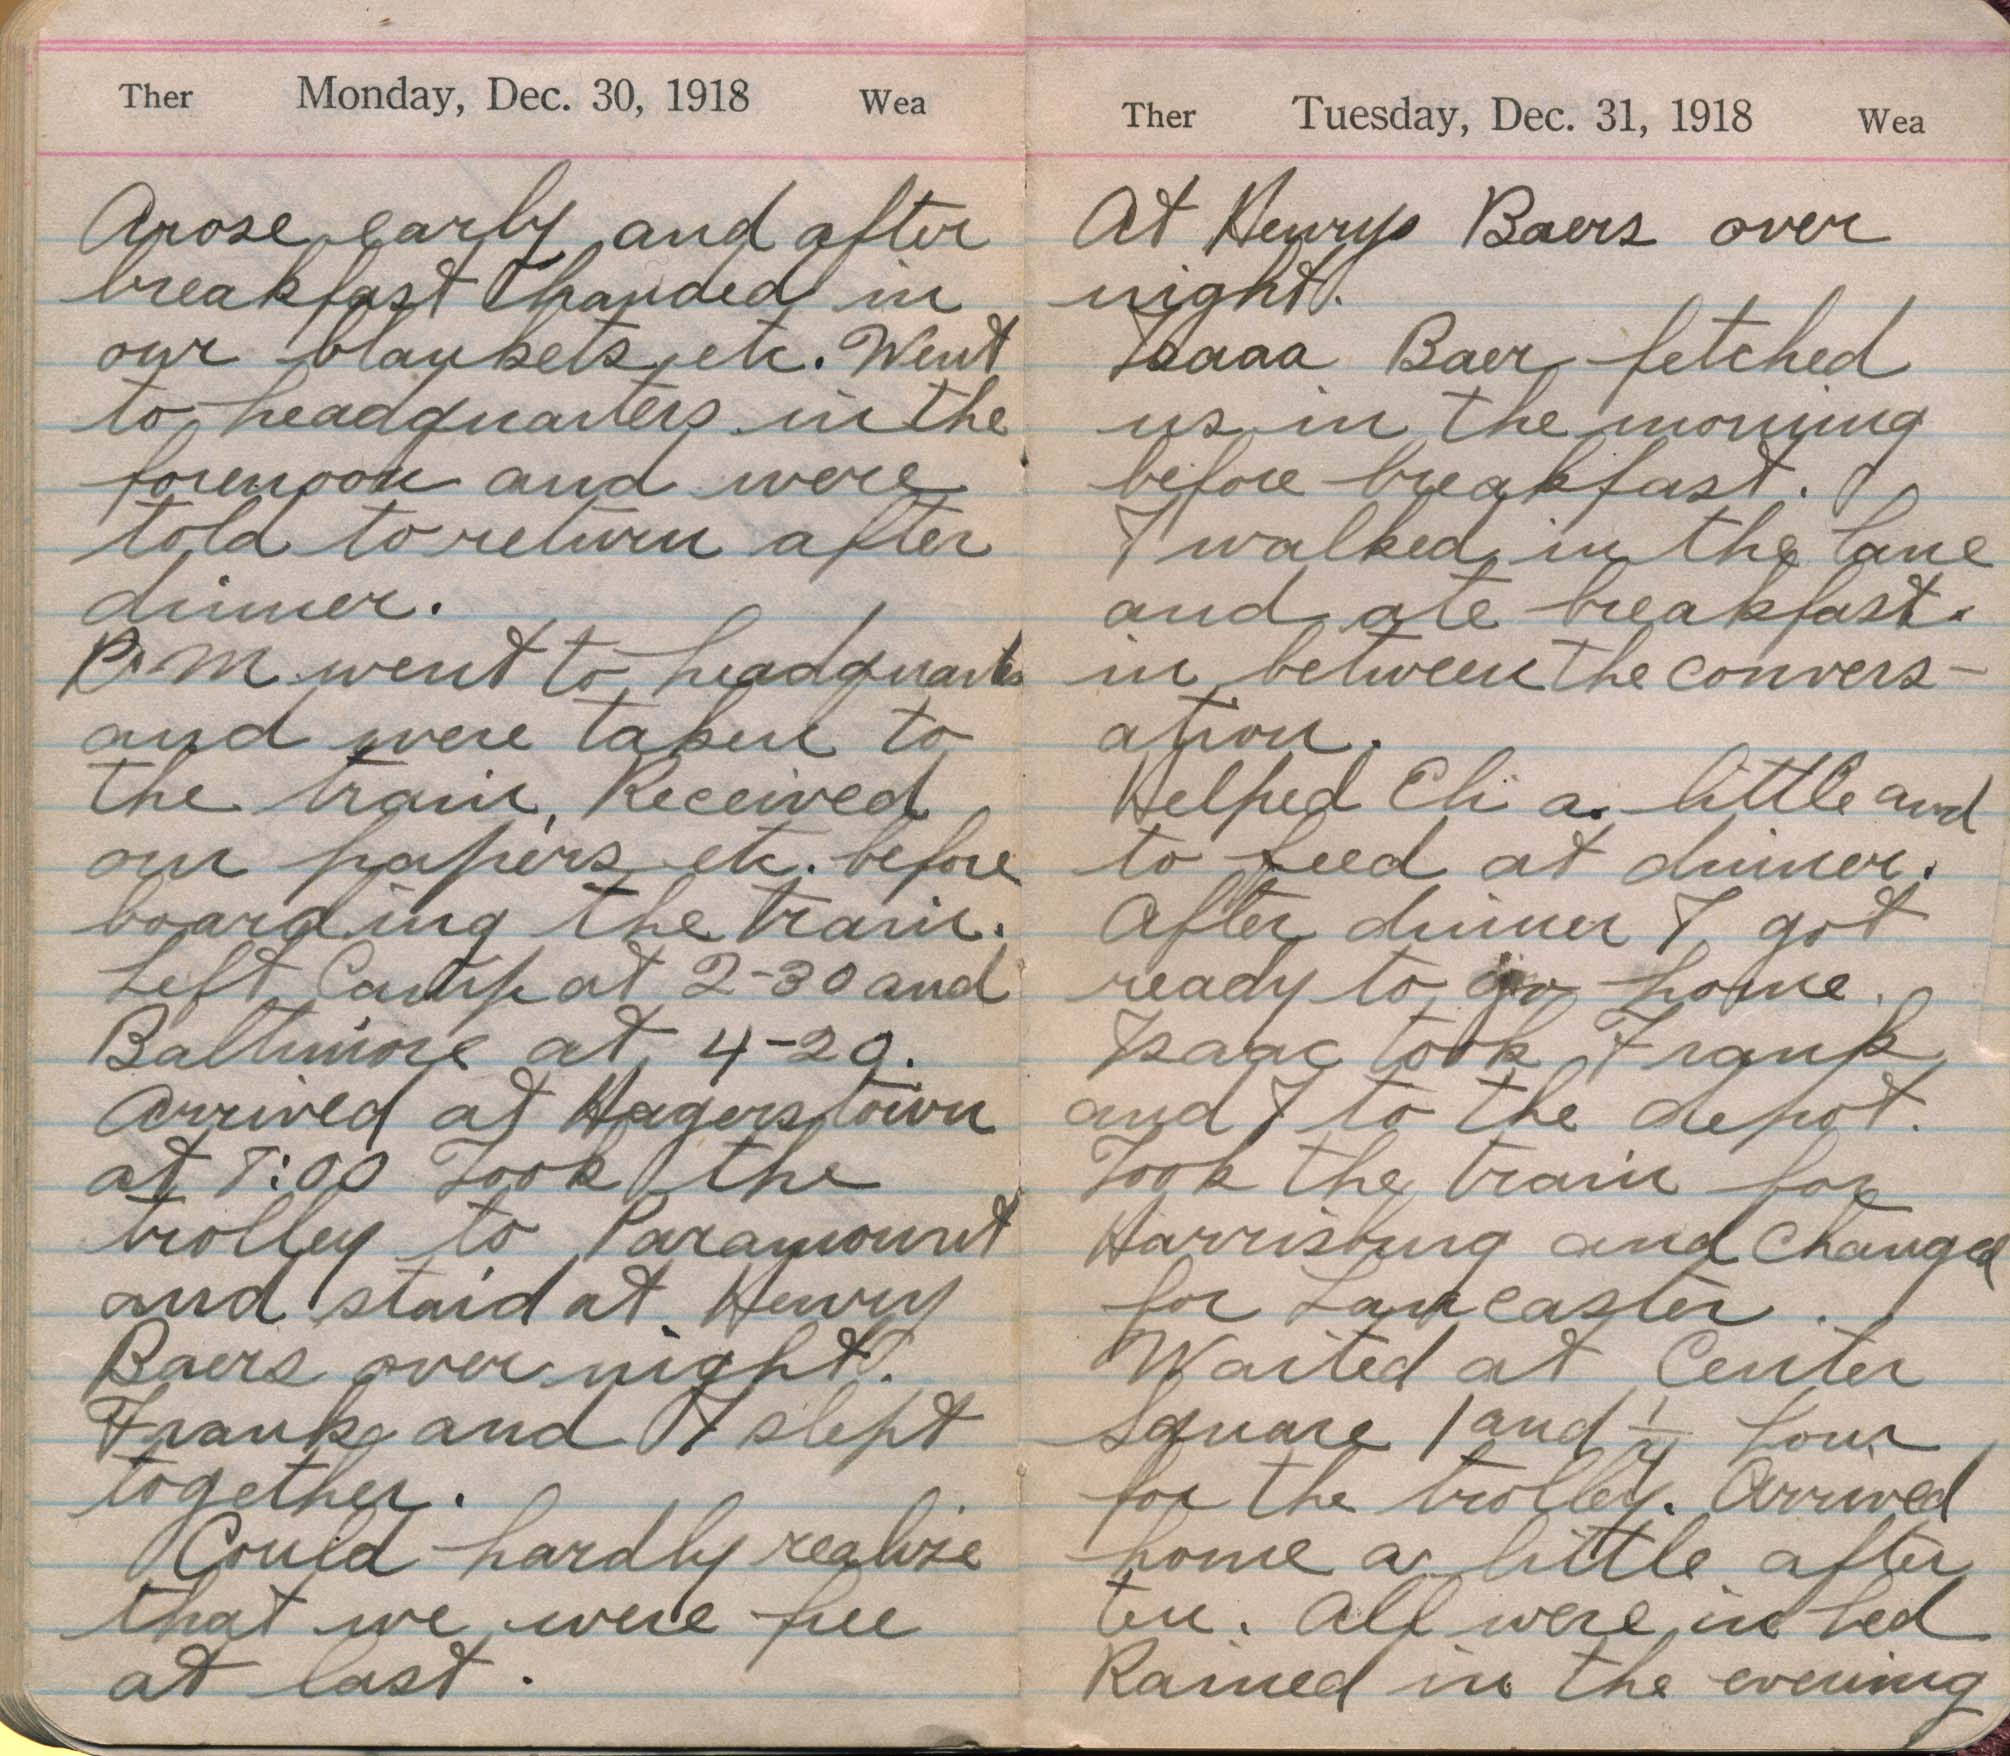 Ther Monday, Dec. 30, 1918 Wea
Arose early and after
breakfast handed in
our blankets etc. Went
to headquarters in the
forenoon and were
told to return after
dinner.
P.M went to headquarters
and were taken to
the train. Received
our papers etc. before
boarding the train.
Left Camp at 2-30 and
Baltimore at 4-20.
Arrived at Hagerstown
at 7:00 Took the
trolley to Paramount
and staid at Henry
Baers over night.
Frank and I slept
together.
Could hardly realize
that we were free
at last.
Ther Tuesday, Dec. 31, 1918 Wea
At Henrys Baers over
night.
Isaaa Baer fetched
us in the morning
before breakfast.
I walked in the lane
and ate breakfast.
in between the convers-
ation.
Helped Eli a little and
to feed at dinner.
After dinner I got
ready to go home.
Isaac took Frank
and I to the depot.
Took the train for
Harrisburg and changed
for Lancaster.
Waited at Center
Square 1 and 1/4 hour
for the trolley. Arrived
home a little after
ten. All were in bed
Rained in the evening